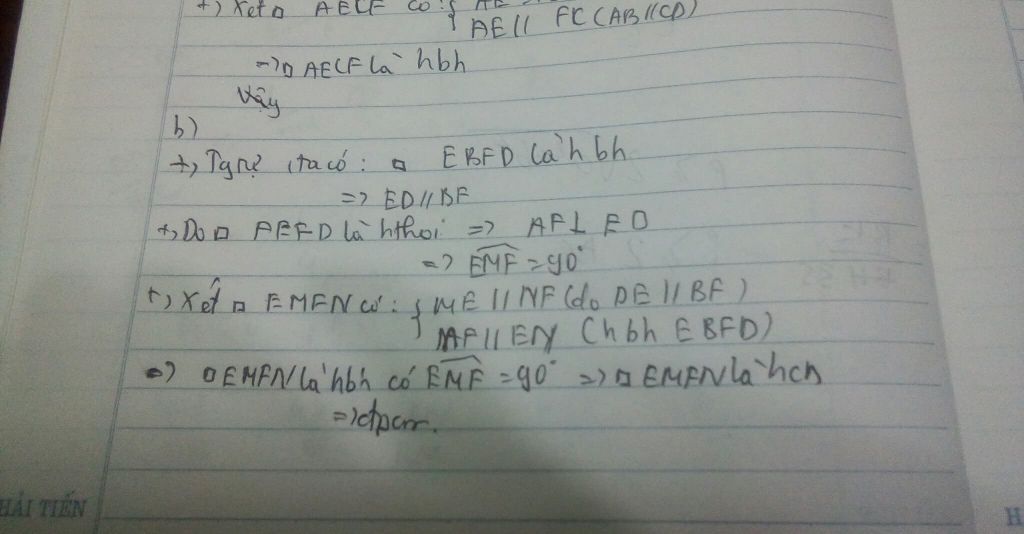 +) Xét □ AECF có: {
AE // FC (AB // CD)
=> □ AECF là hbh
Vậy
b)
+, Tg tự, ta có: □ EBFD là hbh
=> ED // BF
+, Do □ AEFD là hthoi => AF ⊥ ED
=> EMF = 90°
+, Xét □ EMFN có: { ME // NF (do DE // BF)
MF // EN (hbh EBFD)
=> □ EMFN là hbh có EMF = 90° => □ EMFN là hcn
=> đpcm.
HẢI TIẾN
H